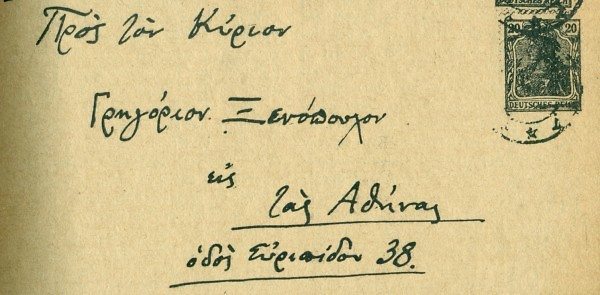 Πρὸς τὸν Κύριον
Γρηγόριον Ξενόπουλον
εἰς
τὰς Ἀθήνας
ὁδὸς Εὐριπίδου 38.
20 20
DEUTSCHES REICH